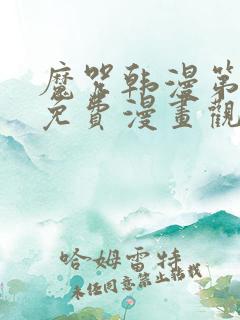 魔咒韩漫第
免費漫畫觀
哈姆雷特
未经同意禁止转载